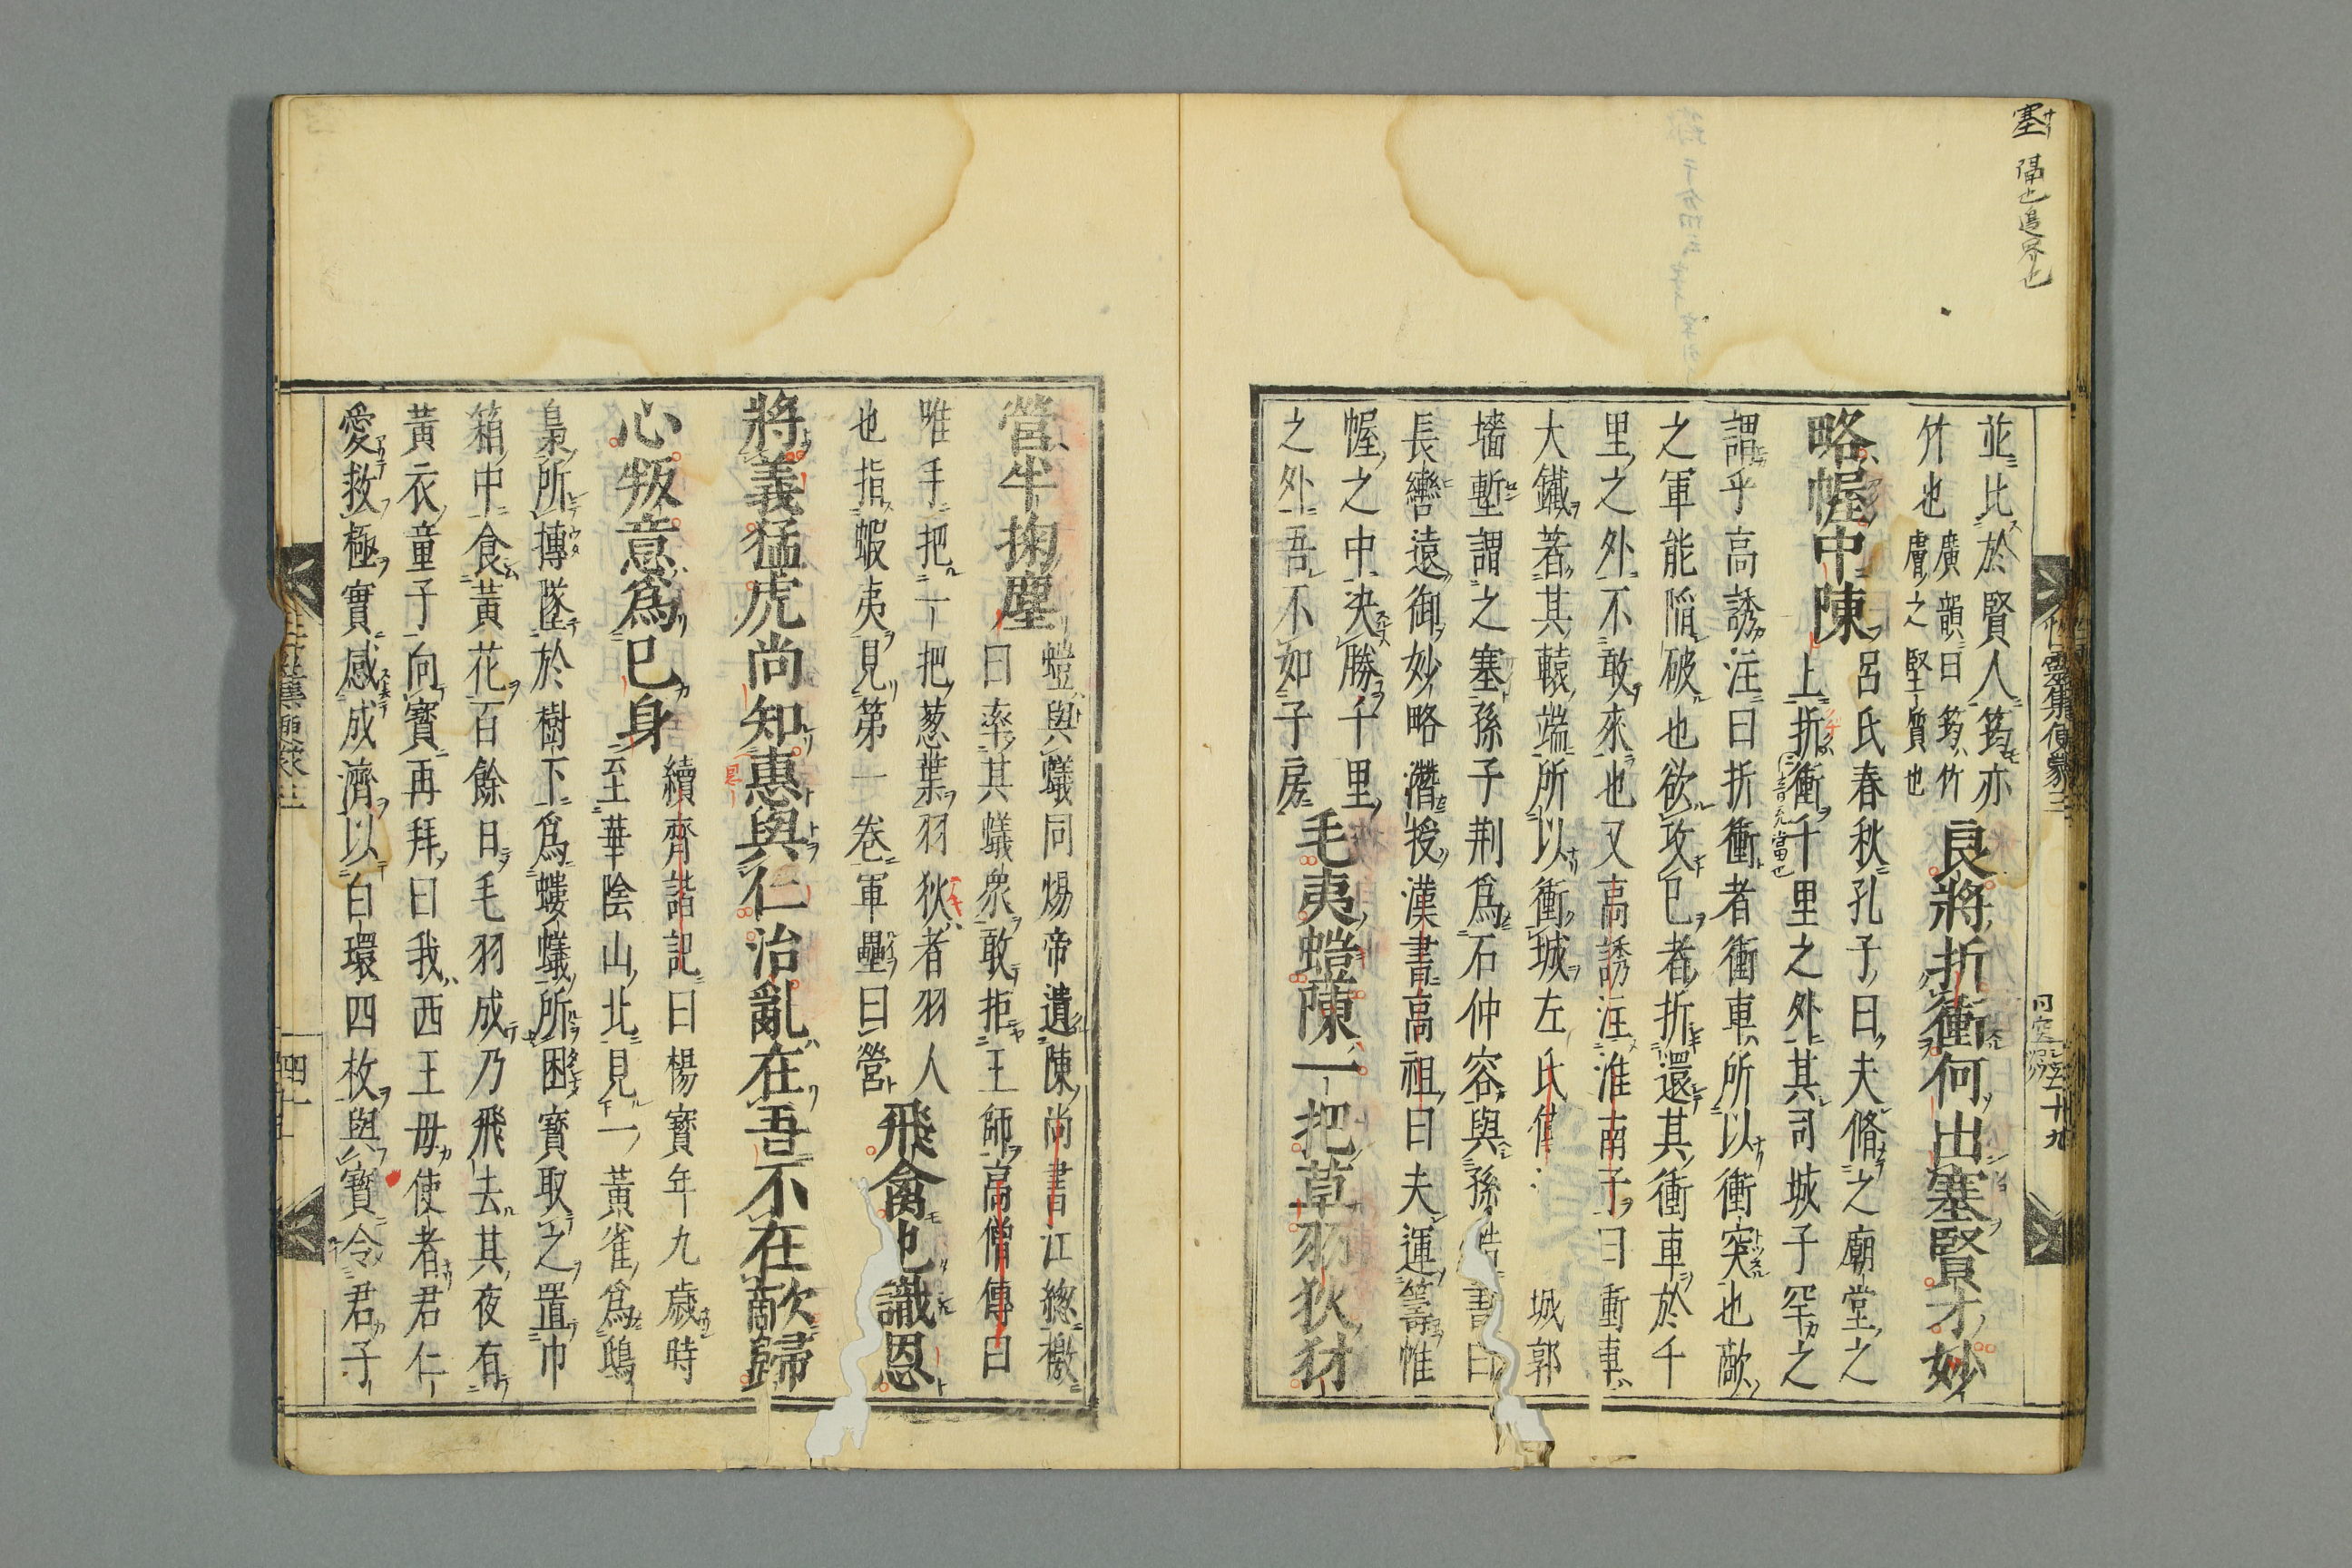 塞 隔也邊界也
並比於賢人筠亦
竹也廣韻曰筠竹
膚之堅質也
良將折衝何出塞賢才妙
略幄中陳
呂氏春秋孔子曰夫脩之廟堂之
上折衝千里之外其司城子罕之
謂乎高誘注曰折衝者衝車所以衝突也敵
之軍能陷破也欲攻已者折還其衝車於千
里之外不敢來也又高誘注淮南子曰衝車
大鐵著其轅端所以衝城左氏傳 城郭
墻塹謂之塞孫子荆爲石仲容與孫皓書曰
長轡遠御妙略潛授漢書高祖曰夫運籌惟
幄之中決勝千里
之外吾不如子房
毛夷螘陳一把草羽狄犲
營半掬塵
螘與蟻同煬帝遺陳尚書江緫檄
曰率其蟻衆敢拒王師高僧傳曰
唯手把一把葱葉羽狄者羽人
也指蝦夷見第一卷軍壘曰營
飛禽也識恩
將義猛虎尚知惠與仁治亂在吾不在敵歸
心叛意爲已身
續齊諧記曰楊寳年九歲時
至華陰山北見一黃雀爲鴟
梟所摶墜於樹下爲螻蟻所困寳取之置巾
箱中食黃花百餘日毛羽成乃飛去其夜有
黃衣童子向寳再拜曰我西王毋使者君仁
愛救極實感成濟以白環四枚與寳令君子